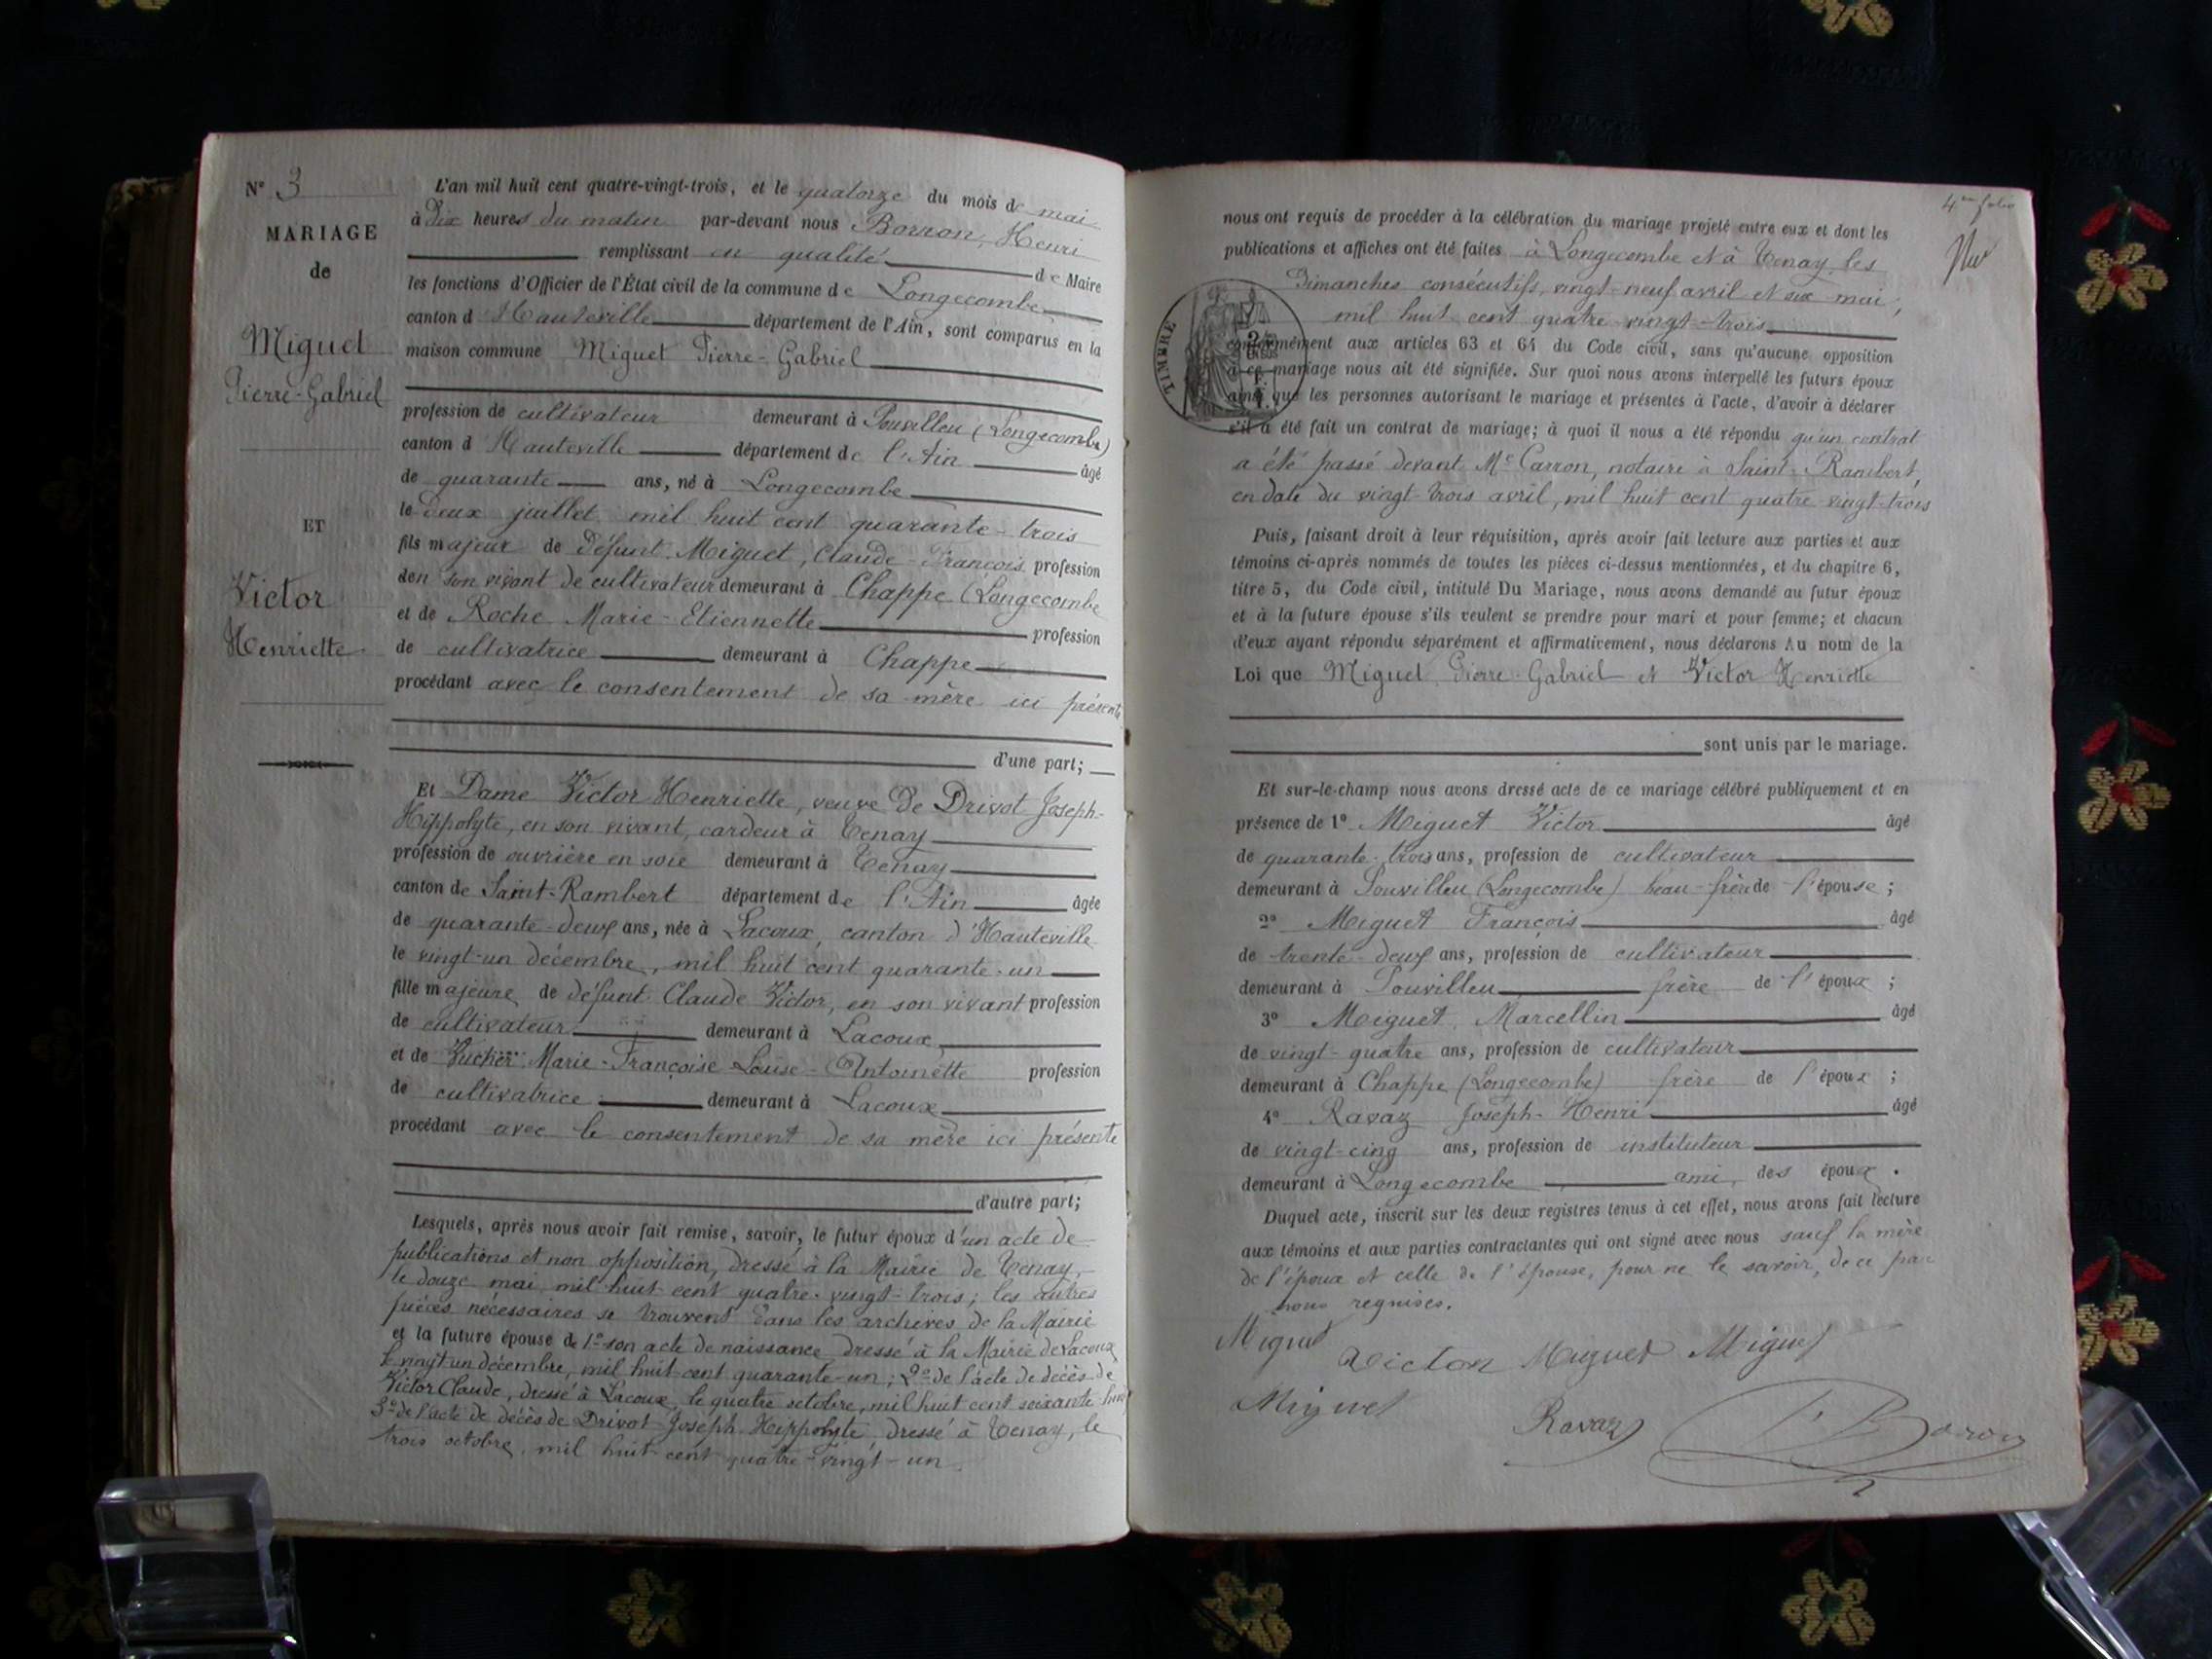 N° 3
MARIAGE
de
Miguet
Pierre-Gabriel
ET
Victor
Henriette
L'an mil huit cent quatre-vingt-trois, et le quatorze du mois de mai
à Dix heures du matin par-devant nous Borron, Henri
remplissant en qualité de Maire
les fonctions d'Officier de l'État civil de la commune de Longecombe
canton d'Hauteville département de l'Ain, sont comparus en la
maison commune Miguet Pierre-Gabriel
profession de cultivateur demeurant à Pouvilleu (Longecombe)
canton d'Hauteville département de l'Ain âgé
de quarante ans, né à Longecombe
le deux juillet mil huit cent quarante-trois
fils majeur de défunt Miguet, Claude-François profession
den son vivant de cultivateur demeurant à Chappe (Longecombe
et de Roche Marie-Etiennette profession
de cultivatrice demeurant à Chappe
procédant avec le consentement de sa mère ici présente
d'une part;
Et Dame Victor Henriette, veuve de Drivot Joseph-
Hippolyte, en son vivant, cardeur à Tenay
profession de ouvrière en soie demeurant à Tenay
canton de Saint-Rambert département de l'Ain âgée
de quarante-deux ans, née à Lacoux, canton d'Hauteville
le vingt-un décembre, mil huit cent quarante-un
fille majeure de défunt Claude Victor, en son vivant profession
de cultivateur demeurant à Lacoux
et de Marie-Françoise Louise-Antoinette profession
de cultivatrice demeurant à Lacoux
procédant avec le consentement de sa mère ici présente
d'autre part;
Lesquels, après nous avoir fait remise, savoir, le futur époux d'un acte de
publications et non opposition, dressé à la Mairie de Tenay,
le douze mai mil huit cent quatre-vingt-trois; les autres
pièces nécessaires se trouvent dans les archives de la Mairie
et la future épouse de 1° son acte de naissance dressé à la Mairie de Lacoux
le vingt un décembre, mil huit cent quarante-un; 2° de l'acte de décès de
Victor Claude, dressé à Lacoux, le quatre octobre, mil huit cent soixante-huit
3° de l'acte de décès de Drivot Joseph Hippolyte dressé à Tenay, le
trois octobre mil huit cent quatre-vingt-un.
4me folio
nous ont requis de procéder à la célébration du mariage projeté entre eux et dont les
publications et affiches ont été faites à Longecombe et à Tenay, les
Dimanches consécutifs, vingt-neuf avril et six mai,
mil huit cent quatre-vingt-trois
TIMBRE
conformément aux articles 63 et 64 du Code civil, sans qu'aucune opposition
à ce mariage nous ait été signifiée. Sur quoi nous avons interpellé les futurs époux
ainsi que les personnes autorisant le mariage et présentes à l'acte, d'avoir à déclarer
s'il a été fait un contrat de mariage; à quoi il nous a été répondu qu'un contrat
a été passé devant Me Carron, notaire à Saint-Rambert,
en date du vingt-trois avril, mil huit cent quatre-vingt-trois
Puis, faisant droit à leur réquisition, après avoir fait lecture aux parties et aux
témoins ci-après nommés de toutes les pièces ci-dessus mentionnées, et du chapitre 6,
titre 5, du Code civil, intitulé Du Mariage, nous avons demandé au futur époux
et à la future épouse s'ils veulent se prendre pour mari et pour femme; et chacun
d'eux ayant répondu séparément et affirmativement, nous déclarons Au nom de la
Loi que Miguet Pierre-Gabriel et Victor Henriette
sont unis par le mariage.
Et sur-le-champ nous avons dressé acte de ce mariage célébré publiquement et en
présence de 1° Miguet Victor âgé
de quarante-trois ans, profession de cultivateur
demeurant à Pouvilleu (Longecombe) beau-frère de l'épouse;
2° Miguet François âgé
de trente-deux ans, profession de cultivateur
demeurant à Pouvilleu frère de l'époux;
3° Miguet, Marcellin âgé
de vingt-quatre ans, profession de cultivateur
demeurant à Chappe (Longecombe) frère de l'époux;
4° Ravaz Joseph-Henri âgé
de vingt-cinq ans, profession de instituteur
demeurant à Longecombe ami, des époux.
Duquel acte, inscrit sur les deux registres tenus à cet effet, nous avons fait lecture
aux témoins et aux parties contractantes qui ont signé avec nous sauf la mère
de l'époux et celle de l'épouse, pour ne le savoir, de ce par
nous requises.
Miguet Victon Miguet Miguet
Miguet Ravaz